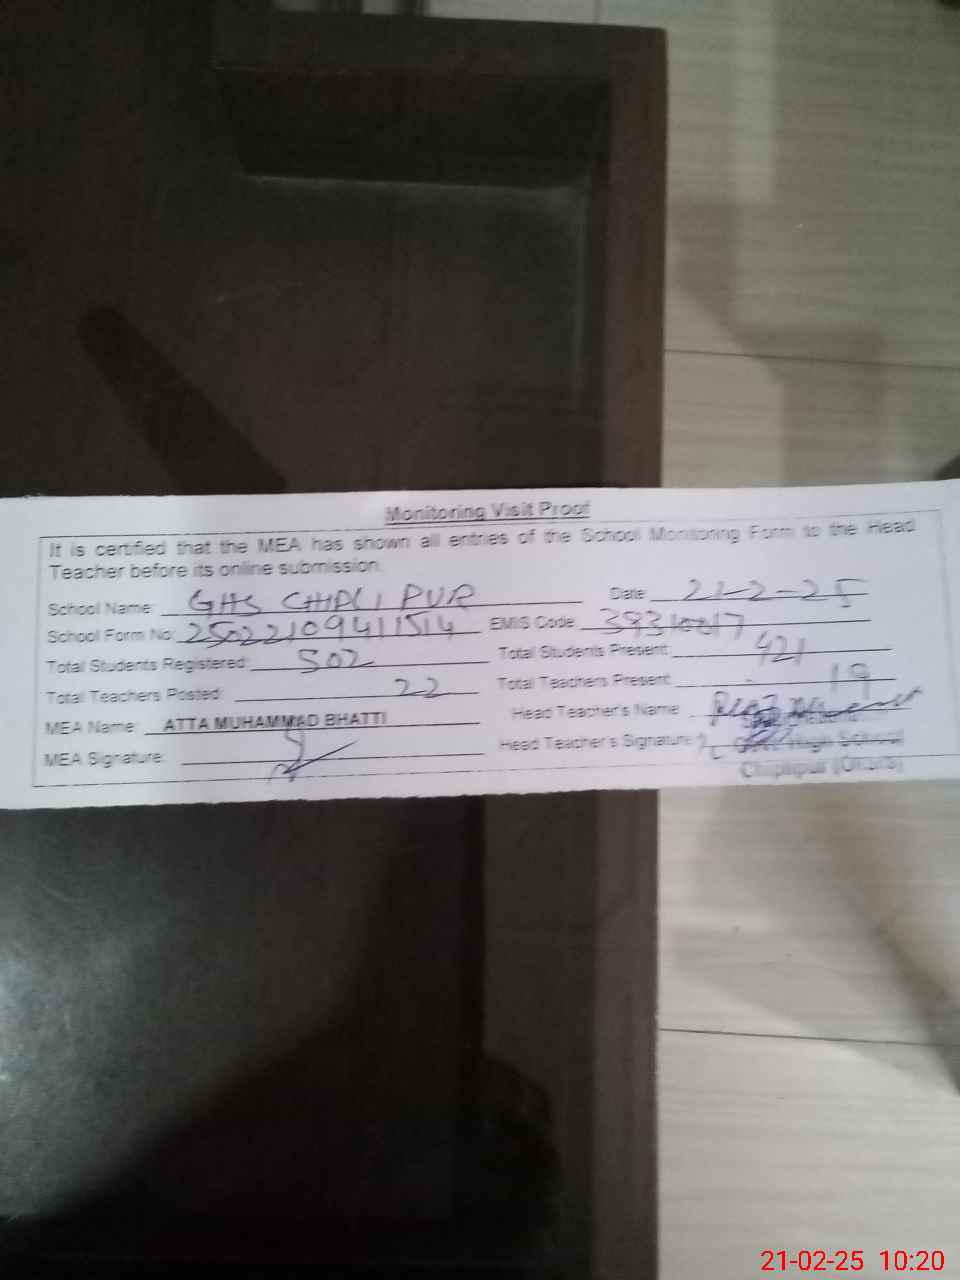 Monitoring Visit Proof
It is certified that the MEA has shown all entries of the School Monitoring Form to the Head
Teacher before its online submission.
School Name: GHS CHIPLI PUR Date: 21-2-25
School Form No: 25022109411514 EMIS Code: 39310017
Total Students Registered: 502 Total Students Present: 421
Total Teachers Posted: 22 Total Teachers Present: 19
MEA Name: ATTA MUHAMMAD BHATTI Head Teacher's Name
MEA Signature: Head Teacher's Signature
Govt. High School
Chiplipur (Okara)
21-02-25 10:20